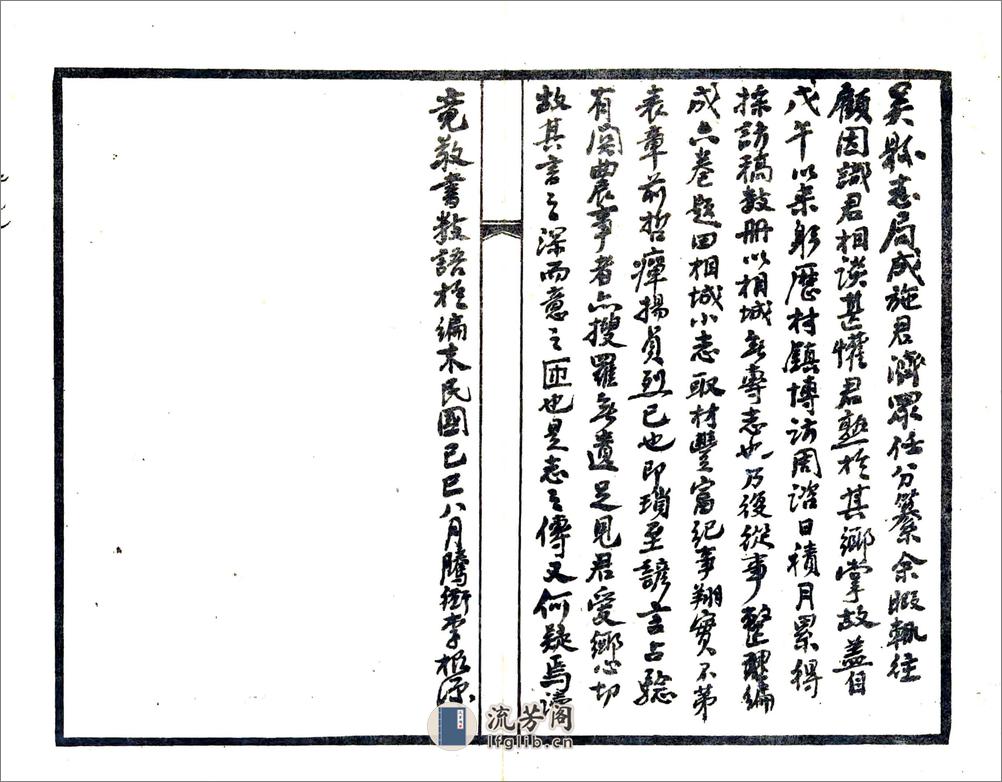 吳縣志局成施君濟眾任分纂余暇輒往
顧因識君相談甚懽君熟於其鄉掌故蓋自
戊午以來躬歷村鎮博訪周諮日積月累得
採訪稿數冊以相城無專志也乃復從事整理編
成六卷題曰相城小志取材豐富紀事翔實不第
表章前哲癉揚貞烈已也即瑣至諺言占驗
有關農事者亦搜羅無遺足見君愛鄉心切
故其言之深而意之匝也是志之傳又何疑焉讀
竟敬書數語於編末民國己巳八月騰衝李根源
流芳阁
lfglib.cn